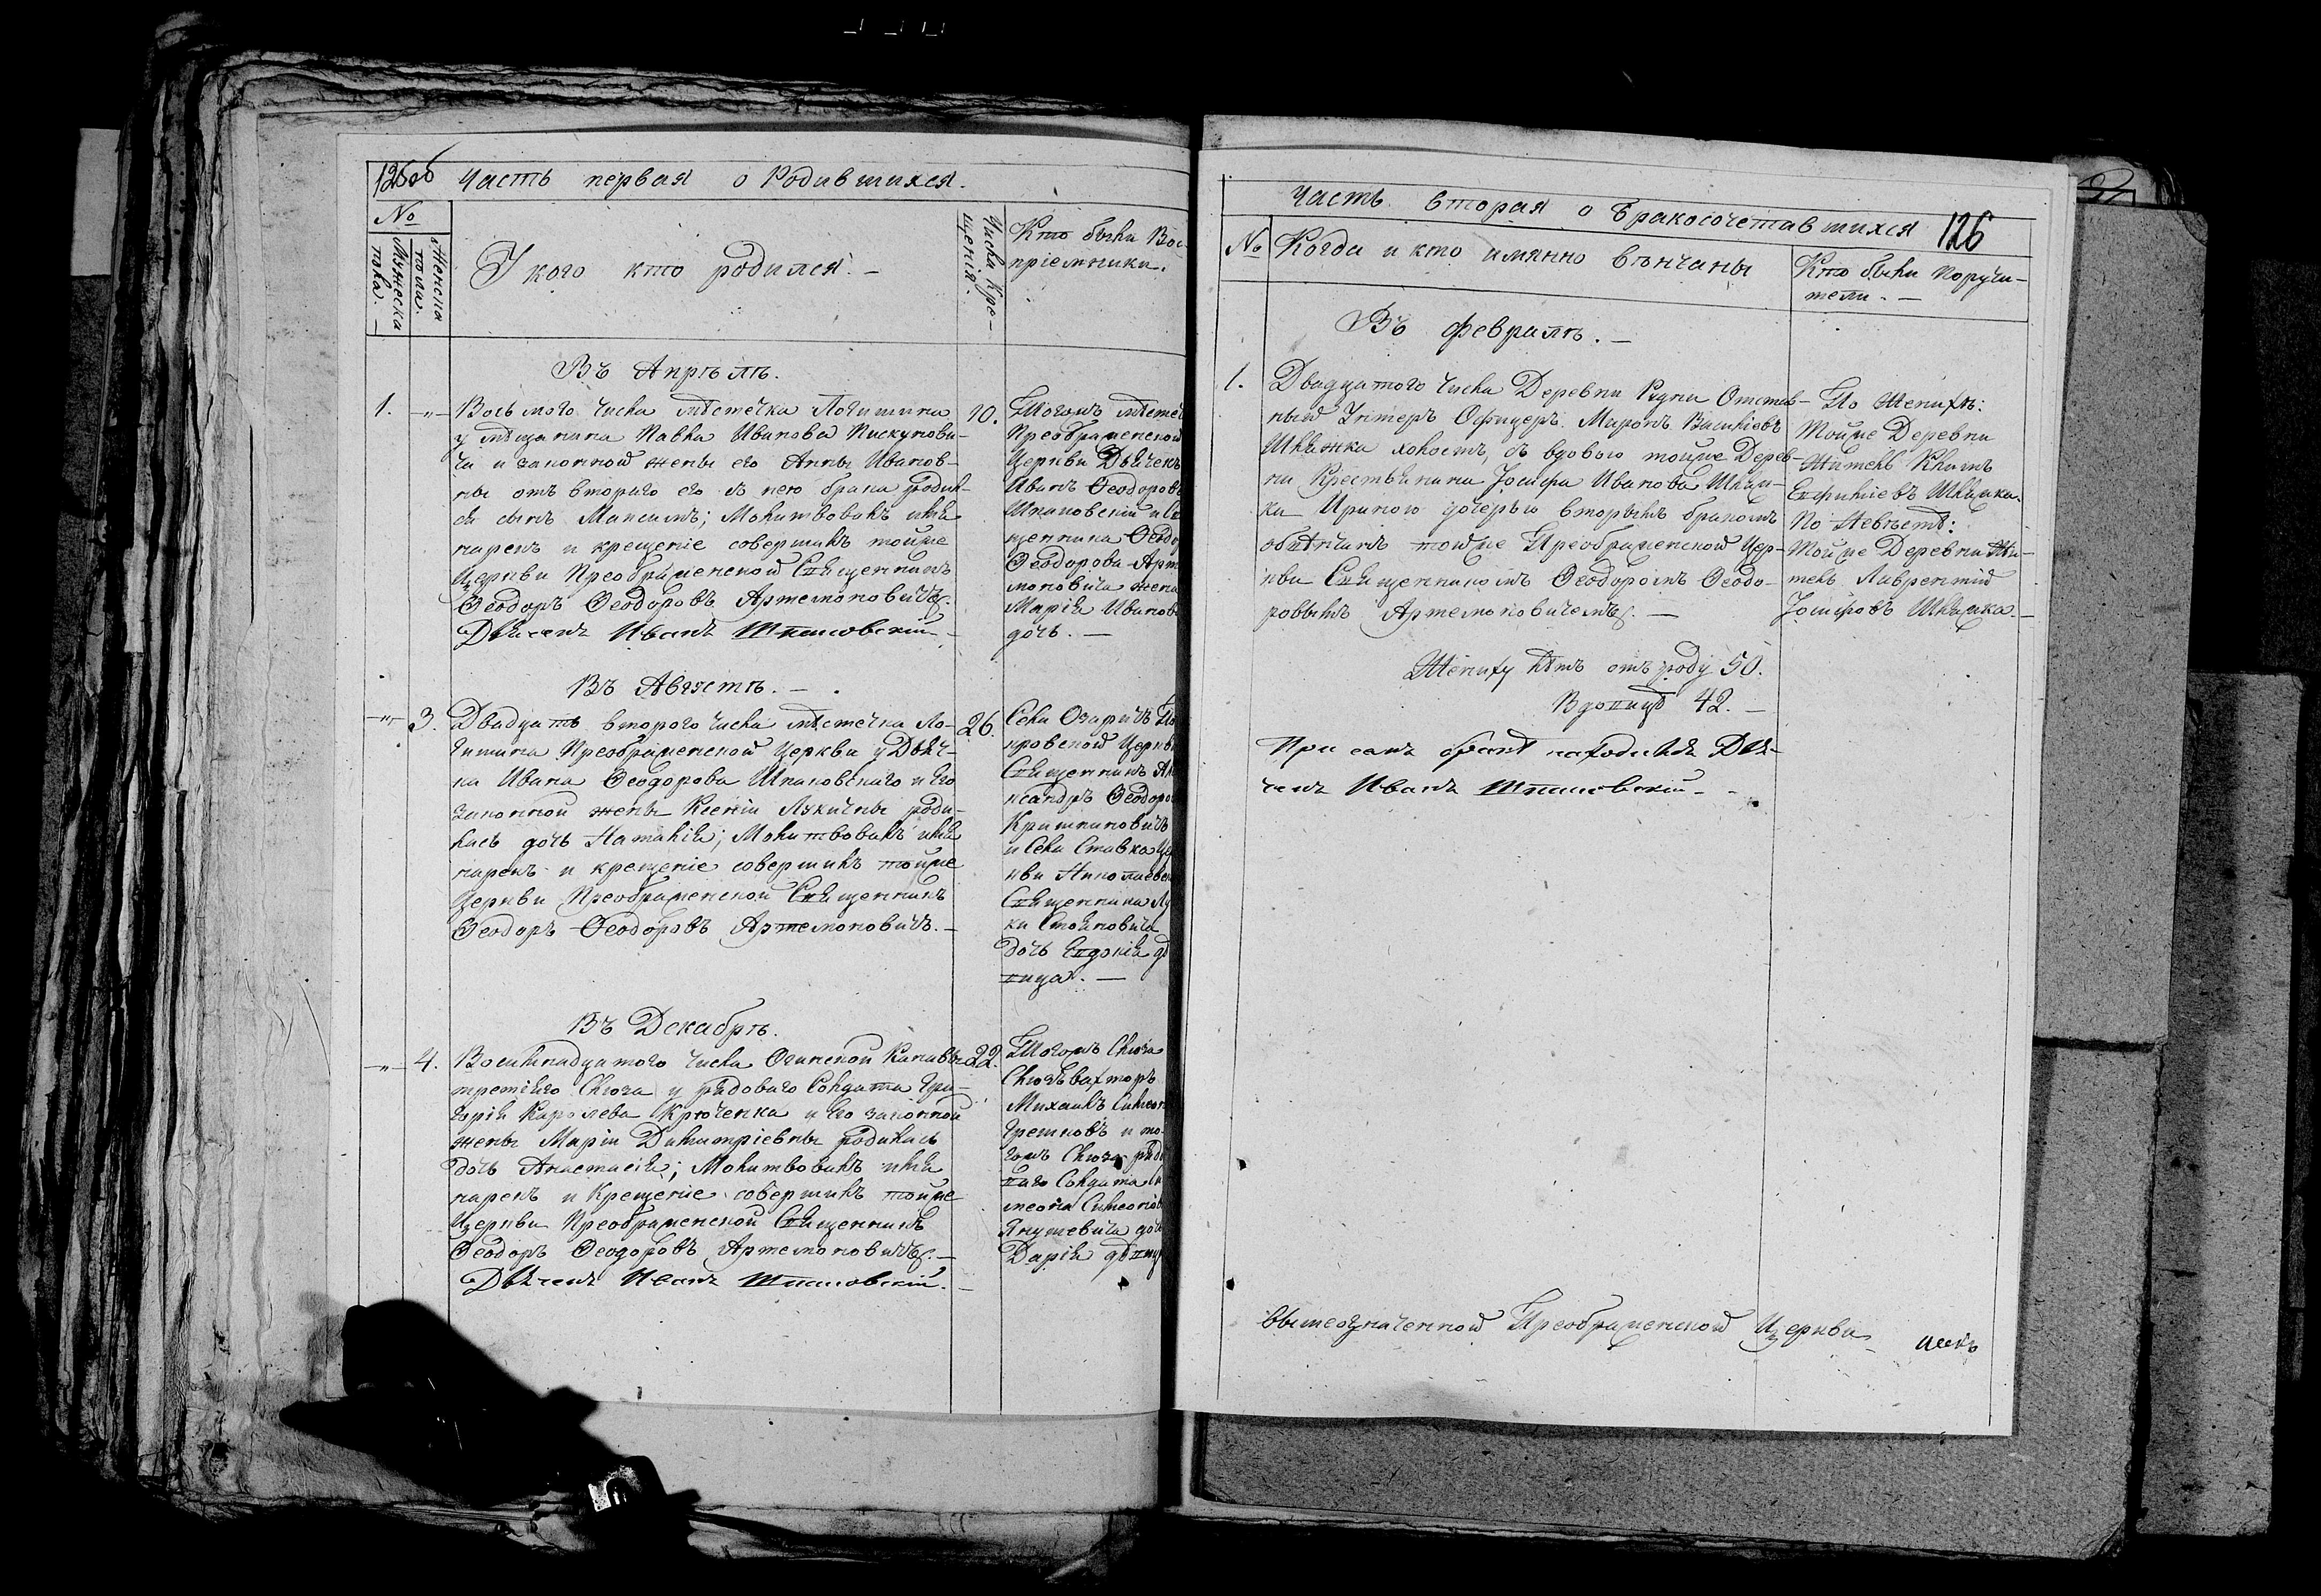 125об Часть первая о Родившихся.
№
Мужеска
пола. —
Женска
пола.
У кого кто родился. —
Числа Кре-
щенія.
Кто были Вос-
пріемники.
Въ Апрѣлѣ.
1. —"—
Восьмого числа мѣстечка Логишина
у мѣщанина Павла Иванова Пискунови-
ча и законной жены его Анны Иванов-
ны отъ втораго его съ нею брака родил-
ся сынъ Максимъ; Молитвовалъ имя
нарекъ и крещеніе совершилъ тойже
Церкви Преображенской Священникъ
Ѳеодоръ Ѳеодоровъ Артемоновичъ.
Дьячекъ Иванъ Шпаковскій. —
10.
Тогожъ мѣстеч
Преображенской
Церкви Дьячекъ
Иванъ Ѳеодоровъ
Шпаковскій и свя
щенника Ѳеодо
Ѳеодорова Арте
моновича жена
Марія Иванова
дочь. —
Въ Августѣ. —
—"— 3.
Двадцать второго числа мѣстечка Ло-
гишина Преображенской Церкви у Дьяч-
ка Ивана Ѳеодорова Шпаковскаго и его
законной жены Ксеніи Лукичны роди-
лась дочь Наталія; Молитвовалъ имя
нарекъ и крещеніе совершилъ тойже
Церкви Преображенской Священникъ
Ѳеодоръ Ѳеодоровъ Артемоновичъ. —
26.
Села Озаричъ По
кровской Церкви
Священникъ Але
ксандръ Ѳеодоро
и Села Ставка Це
ркви Николаевск
Священника Лу
ки Стояновича
дочь Евдокія дѣ
вица. —
Въ Декабрѣ.
—"— 4.
Восемнадцатого числа Огинской Канавы
третьяго Слюза у рядоваго Солдата Гри-
горія Каролева Крюченка и его законной
жены Маріи Димитріевны родилась
дочь Анастасія; Молитвовалъ имя
нарекъ и Крещеніе совершилъ тойже
Церкви Преображенской Священникъ
Ѳеодоръ Ѳеодоровъ Артемоновичъ. —
Дьячекъ Иванъ Шпаковскій. —
22.
Тогожъ Слюза
Слюзъвахторъ
Михаилъ Симеон
Грешновъ и то-
гожъ Слюза рядо
ваго Солдата Си
меона Симеонов
Янушевича дочь
Дарія дѣвиц
Часть вторая о Бракосочетавшихся 126
№ Когда и кто имянно вѣнчаны
Кто были Поручи-
тели. —
Въ февралѣ. —
1. Двадцатого числа Деревни Рудни Отстав-
ный Унтеръ Офицеръ Миронъ Василіевъ
Шкляжка холостъ, съ вдовою тойже Дерев-
ни Крестьянина Іосифа Иванова Шкля-
ки Ириною дочерью вторымъ бракомъ
обвѣнчанъ тойже Преображенской Цер-
кви Священникомъ Ѳеодоромъ Ѳеодо-
ровымъ Артемоновичемъ. —
По Женихѣ:
Тойже Деревни
Житель Климъ
По Невѣстѣ:
Тойже Деревни Жи-
тель Лаврентій
Жениху лѣтъ отъ роду 50.
Вдовицѣ 42. —
При семъ бракѣ находился Дья-
чекъ Иванъ Шпаковскій. —
вышеозначенной Преображенской Церкви